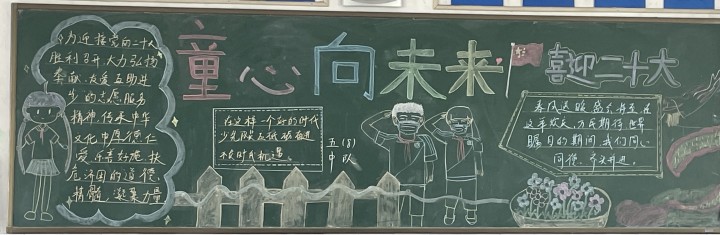 为迎接党的二十大
胜利召开,大力弘扬
奉献、友爱、互助、进
步的志愿服务
精神,传承中华
文化中厚德仁
爱、乐善好施、扶
危济困的道德
精髓,凝聚力量
童心向未来
喜迎二十大
在这样一个好的时代
少先队员砥砺奋进
不负时代机遇。
五(8)
中队
春风送暖
这年欢天,万民期待,世界
瞩目的期间,我们同心
同德,奋勇前进。